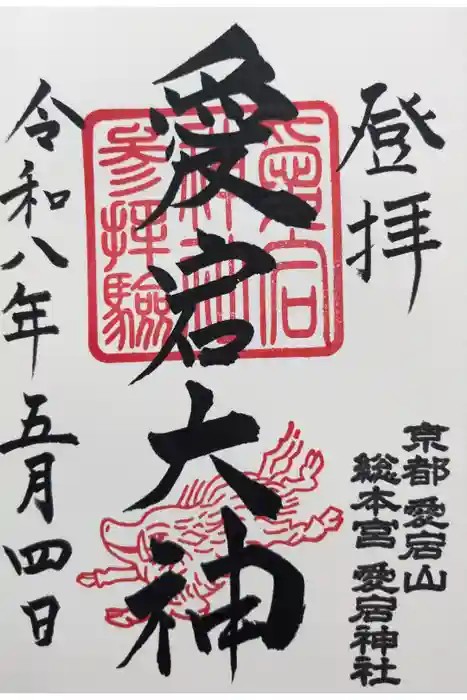 登拝
京都 愛宕山
総本宮 愛宕神社
愛宕大神
愛宕
神社
参拝験
令和八年 五月四日